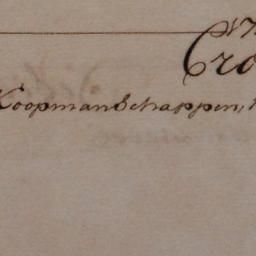 Cro
Koopmanschappen,